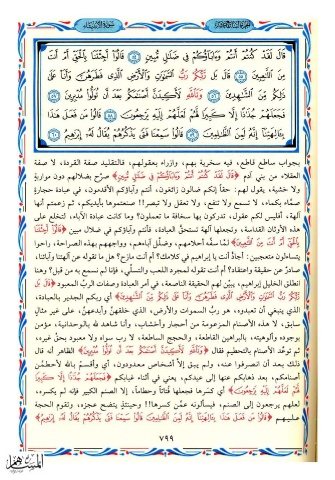 قَالَ لَقَدْ كُنْتُمْ أَنْتُمْ وَءَابَاؤُكُمْ فِي ضَلَالٍ مُبِينٍ ٥٤ قَالُوا أَجِئْتَنَا بِالْحَقِّ أَمْ أَنْتَ
مِنَ اللَّاعِبِينَ ٥٥ قَالَ بَلْ رَبُّكُمْ رَبُّ السَّمَوَاتِ وَالْأَرْضِ الَّذِي فَطَرَهُنَّ وَأَنَا عَلَى
ذَلِكُمْ مِنَ الشَّاهِدِينَ ٥٦ وَتَاللَّهِ لَأَكِيدَنَّ أَصْنَامَكُمْ بَعْدَ أَنْ تُوَلُّوا مُدْبِرِينَ ٥٧
فَجَعَلَهُمْ جُذَاذًا إِلَّا كَبِيرًا لَهُمْ لَعَلَّهُمْ إِلَيْهِ يَرْجِعُونَ ٥٨ قَالُوا مَنْ فَعَلَ هَذَا
بِآلِهَتِنَا إِنَّهُ لَمِنَ الظَّالِمِينَ ٥٩ قَالُوا سَمِعْنَا فَتًى يَذْكُرُهُمْ يُقَالُ لَهُ إِبْرَاهِيمُ ٦٠
بجواب ساطع قاطع، فيه سخرية بهم، وازراء بعقولهم، فالتقليد صفة القردة، لا صفة
العقلاء من بني آدم ﴿قَالَ لَقَدْ كُنْتُمْ أَنْتُمْ وَءَابَاؤُكُمْ فِي ضَلَالٍ مُبِينٍ﴾ صرّح بضلالهم دون مواربةٍ
ولا خشية، يقول لهم: حقاً إنكم ضالون زائغون، أنتم وآباؤكم الأقدمون، في عبادة حجارةٍ
صمَّاء بكماء، لا تسمع ولا تنفع، ولا تعقل ولا تبصر!! صنعتموها بأيديكم، ثم زعمتم أنها
آلهة، أفليس لكم عقول، تدركون بها سخافة ما تعملون؟ وما كانت عبادة الآباء، لتخلع على
هذه الأوثان القداسة، وتجعلها آلهة تستحقُّ العبادة، فأنتم وآباؤكم في ضلال مبين ﴿قَالُوا أَجِئْتَنَا
بِالْحَقِّ أَمْ أَنْتَ مِنَ اللَّاعِبِينَ﴾ لمّا سفَّه أحلامهم، وضلَّل آباءهم، وواجههم بهذه الصراحة، راحوا
يتساءلون متعجبين: أجادٌّ أنت يا إبراهيم في كلامك؟ أم أنت مازح؟ هل ما تقوله عن آلهتنا وآبائنا،
صادرٌ عن حقيقة واعتقاد؟ أم أنت تقوله لمجرد اللعب والتسلِّي، فإنّا لم نسمع به من قبل؟ وهنا
انطلق الخليل إبراهيم، يبيِّن لهم الحقيقة الناصعة، في أمر العبادة وصفات الربِّ المعبود ﴿قَالَ بَلْ
رَبُّكُمْ رَبُّ السَّمَوَاتِ وَالْأَرْضِ الَّذِي فَطَرَهُنَّ وَأَنَا عَلَى ذَلِكُمْ مِنَ الشَّاهِدِينَ﴾ أي ربكم الجدير بالعبادة،
الذي ينبغي أن تعبدوه، هو ربُّ السموات والأرض، الذي خلقهنَّ وأبدعهنَّ، على غير مثالٍ
سابق، لا هذه الأصنام المزعومة من أحجار وأخشاب، وأنا شاهد لله بالوحدانية، مؤمن
بوجوده وألوهيته، بالبراهين القاطعة، والحجج الساطعة، لا رب سواه ولا معبود بحقٍّ غيره،
ثم توعَّد الأصنام بالتحطيم فقال ﴿وَتَاللَّهِ لَأَكِيدَنَّ أَصْنَامَكُمْ بَعْدَ أَنْ تُوَلُّوا مُدْبِرِينَ﴾ الظاهر أنه قال
ذلك بعد أن انصرفوا عنه، ولم يبق إلاَّ أشخاص معدودون، أي وأقسم بالله لأحطمنَّ
أصنامكم، بعد ذهابكم عنها إلى عيدكم، يعني في أثناء غيابكم ﴿فَجَعَلَهُمْ جُذَاذًا إِلَّا كَبِيرًا
لَهُمْ لَعَلَّهُمْ إِلَيْهِ يَرْجِعُونَ﴾ أي كسرها فجعلها فُتاتاً وحطاماً، إلا الصنم الكبير فإنه لم يكسره،
لعلهم يرجعون إلى الصنم، فيسألونه عمَّن كسرها!! وحينئذٍ يتضح عجزه، وتقوم الحجة
عليهم ﴿قَالُوا مَنْ فَعَلَ هَذَا بِآلِهَتِنَا إِنَّهُ لَمِنَ الظَّالِمِينَ﴾ ﴿قَالُوا سَمِعْنَا فَتًى يَذْكُرُهُمْ يُقَالُ لَهُ إِبْرَاهِيمُ﴾
٧٩٩